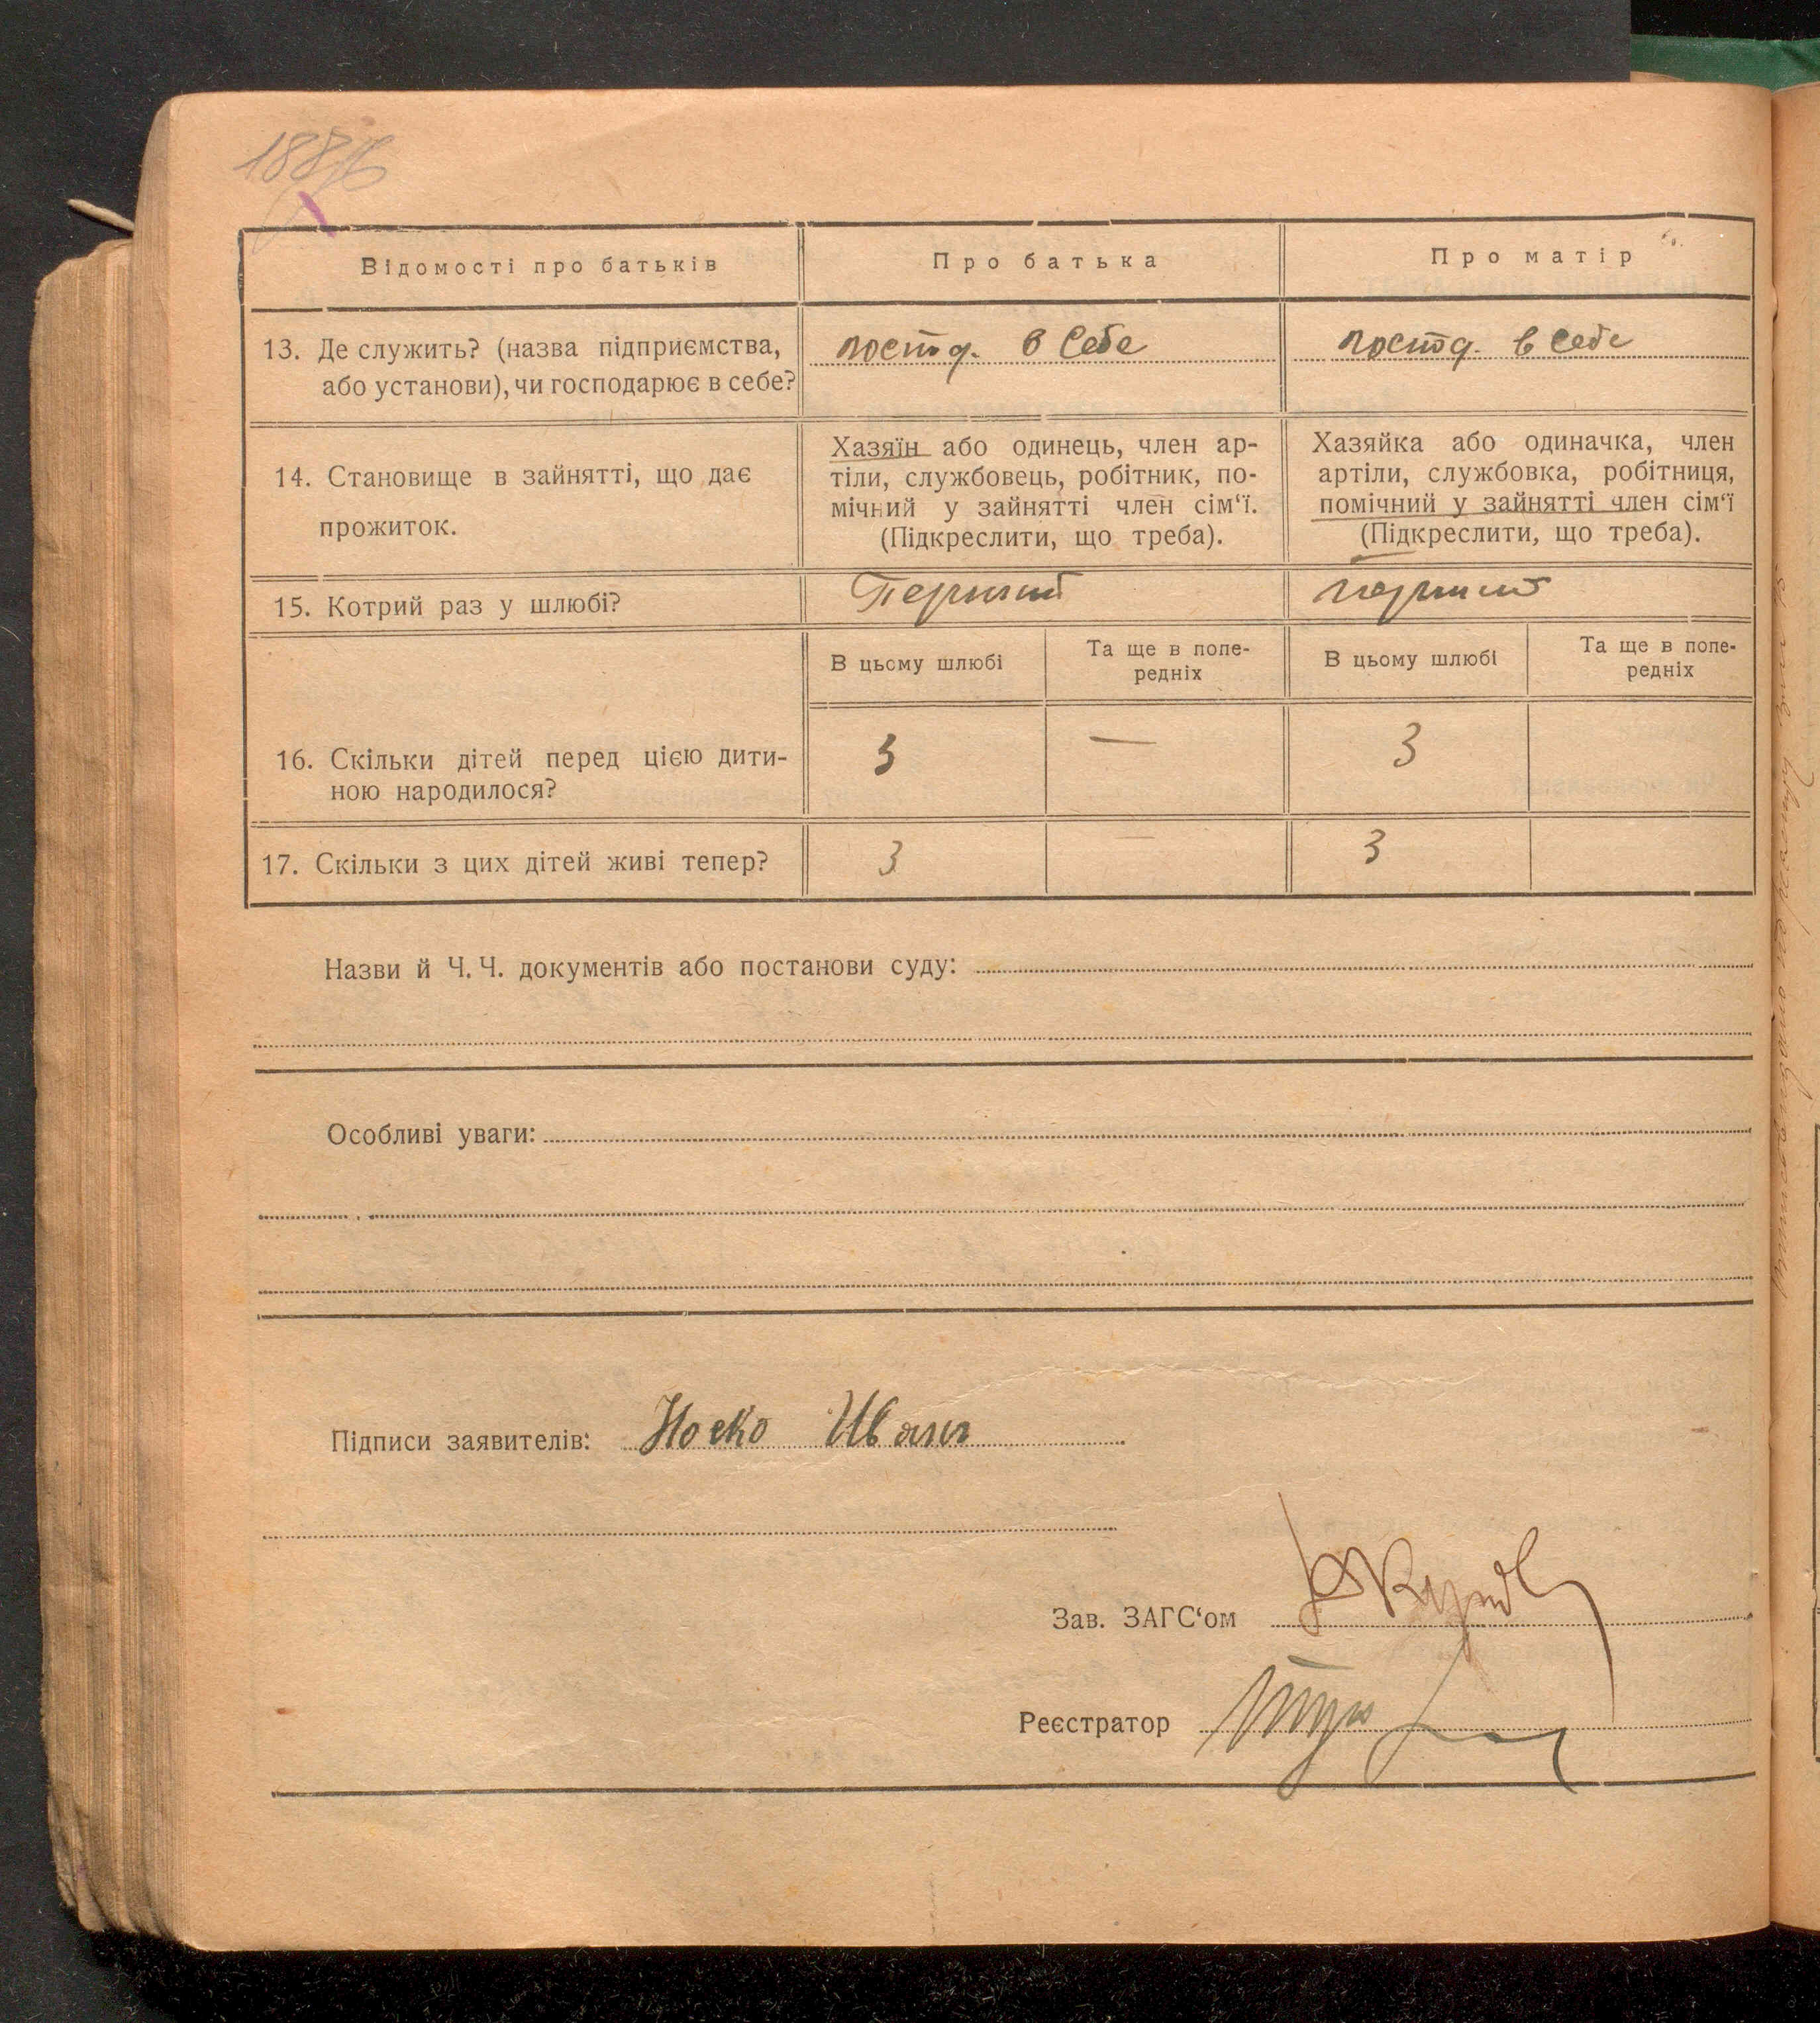 Відомості про батьків
Про батька
Про матір
13. Де служить? (назва підприємства,
або установи), чи господарює в себе?
господ. в себе
господ. в себе
14. Становище в зайнятті, що дає
прожиток.
Хазяїн або одинець, член ар-
тіли, службовець, робітник, по-
мічний у зайнятті член сім‘ї.
(Підкреслити, що треба).
Хазяйка або одиначка, член
артіли, службовка, робітниця,
помічний у зайнятті член сім‘ї
(Підкреслити, що треба).
15. Котрий раз у шлюбі?
Перший
перший
В цьому шлюбі
Та ще в попе-
редніх
В цьому шлюбі
Та ще в попе-
редніх
16. Скільки дітей перед цією дити-
ною народилося?
3
—
3
17. Скільки з цих дітей живі тепер?
3
—
3
Назви й Ч. Ч. документів або постанови суду:
Особливі уваги:
Підписи заявителів: Носко Иван
Зав. ЗАГС‘ом
Реєстратор